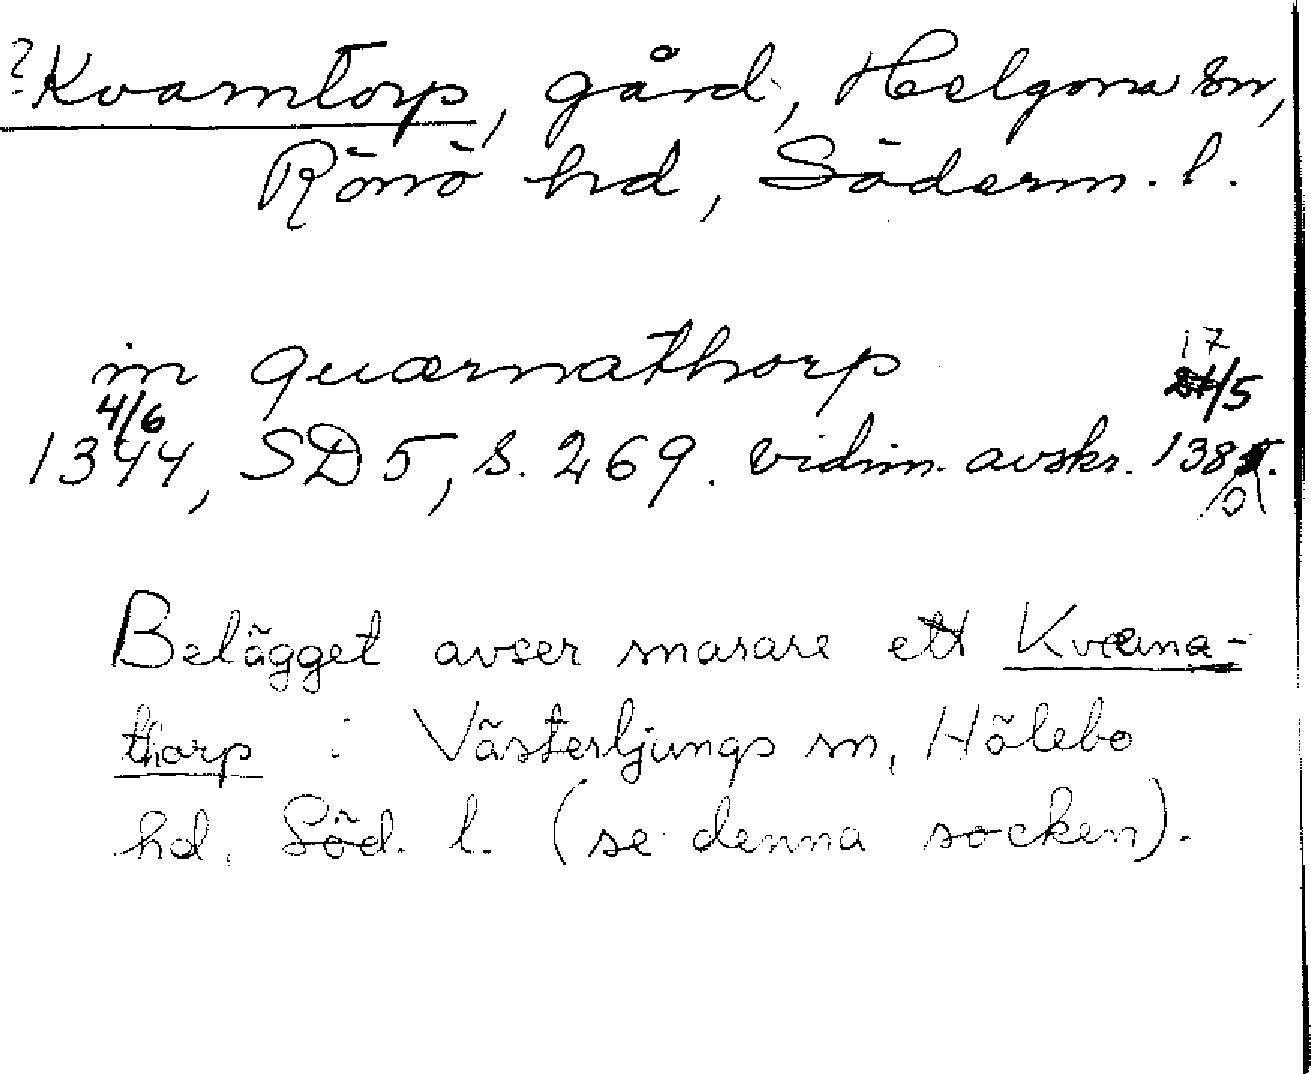 ? Kvarntorp, gård, Helgona sn,
Rönö hd, Söderm. l.
in quærnathorp
17
/5
4/6
1344, SD 5, s. 269. vidim. avskr. 138
0
Belägget avser snarare ett Kværna-
thorp i Västerljungs sn, Hölebo
hd, Söd. l. (se denna socken).